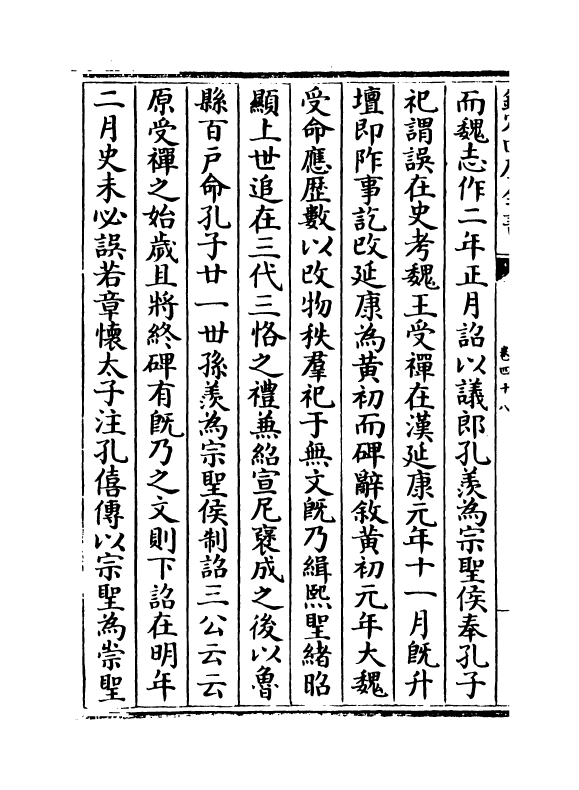 欽定四庫全書
卷四十八
而魏志作二年正月詔以議郎孔羨為宗聖侯奉孔子
祀謂誤在史考魏王受禪在漢延康元年十一月既升
壇即阼事訖改延康為黃初而碑辭敘黃初元年大魏
受命應歴數以改物秩羣祀于無文既乃緝熙聖緒昭
顯上世追在三代三恪之禮兼紹宣尼襃成之後以魯
縣百戸命孔子廿一世孫羨為宗聖侯制詔三公云云
原受禪之始歲且將終碑有既乃之文則下詔在明年
二月史未必誤若章懷太子注孔僖傳以宗聖為崇聖